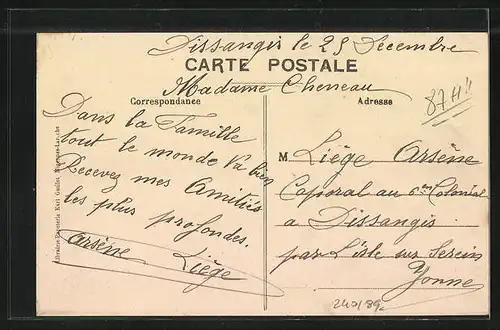 Dissangis le 25 Décembre
CARTE POSTALE
Madame Cheneau
Correspondance
Adresse
87H!!
Dans la Famille
tout le monde va bien
Recevez mes Amitiés
les plus profondes.
Arsène Liège
M Liège Arsène
Caporal au 6em Colonial
a Dissangis
par L'isle sur Serein
Yonne